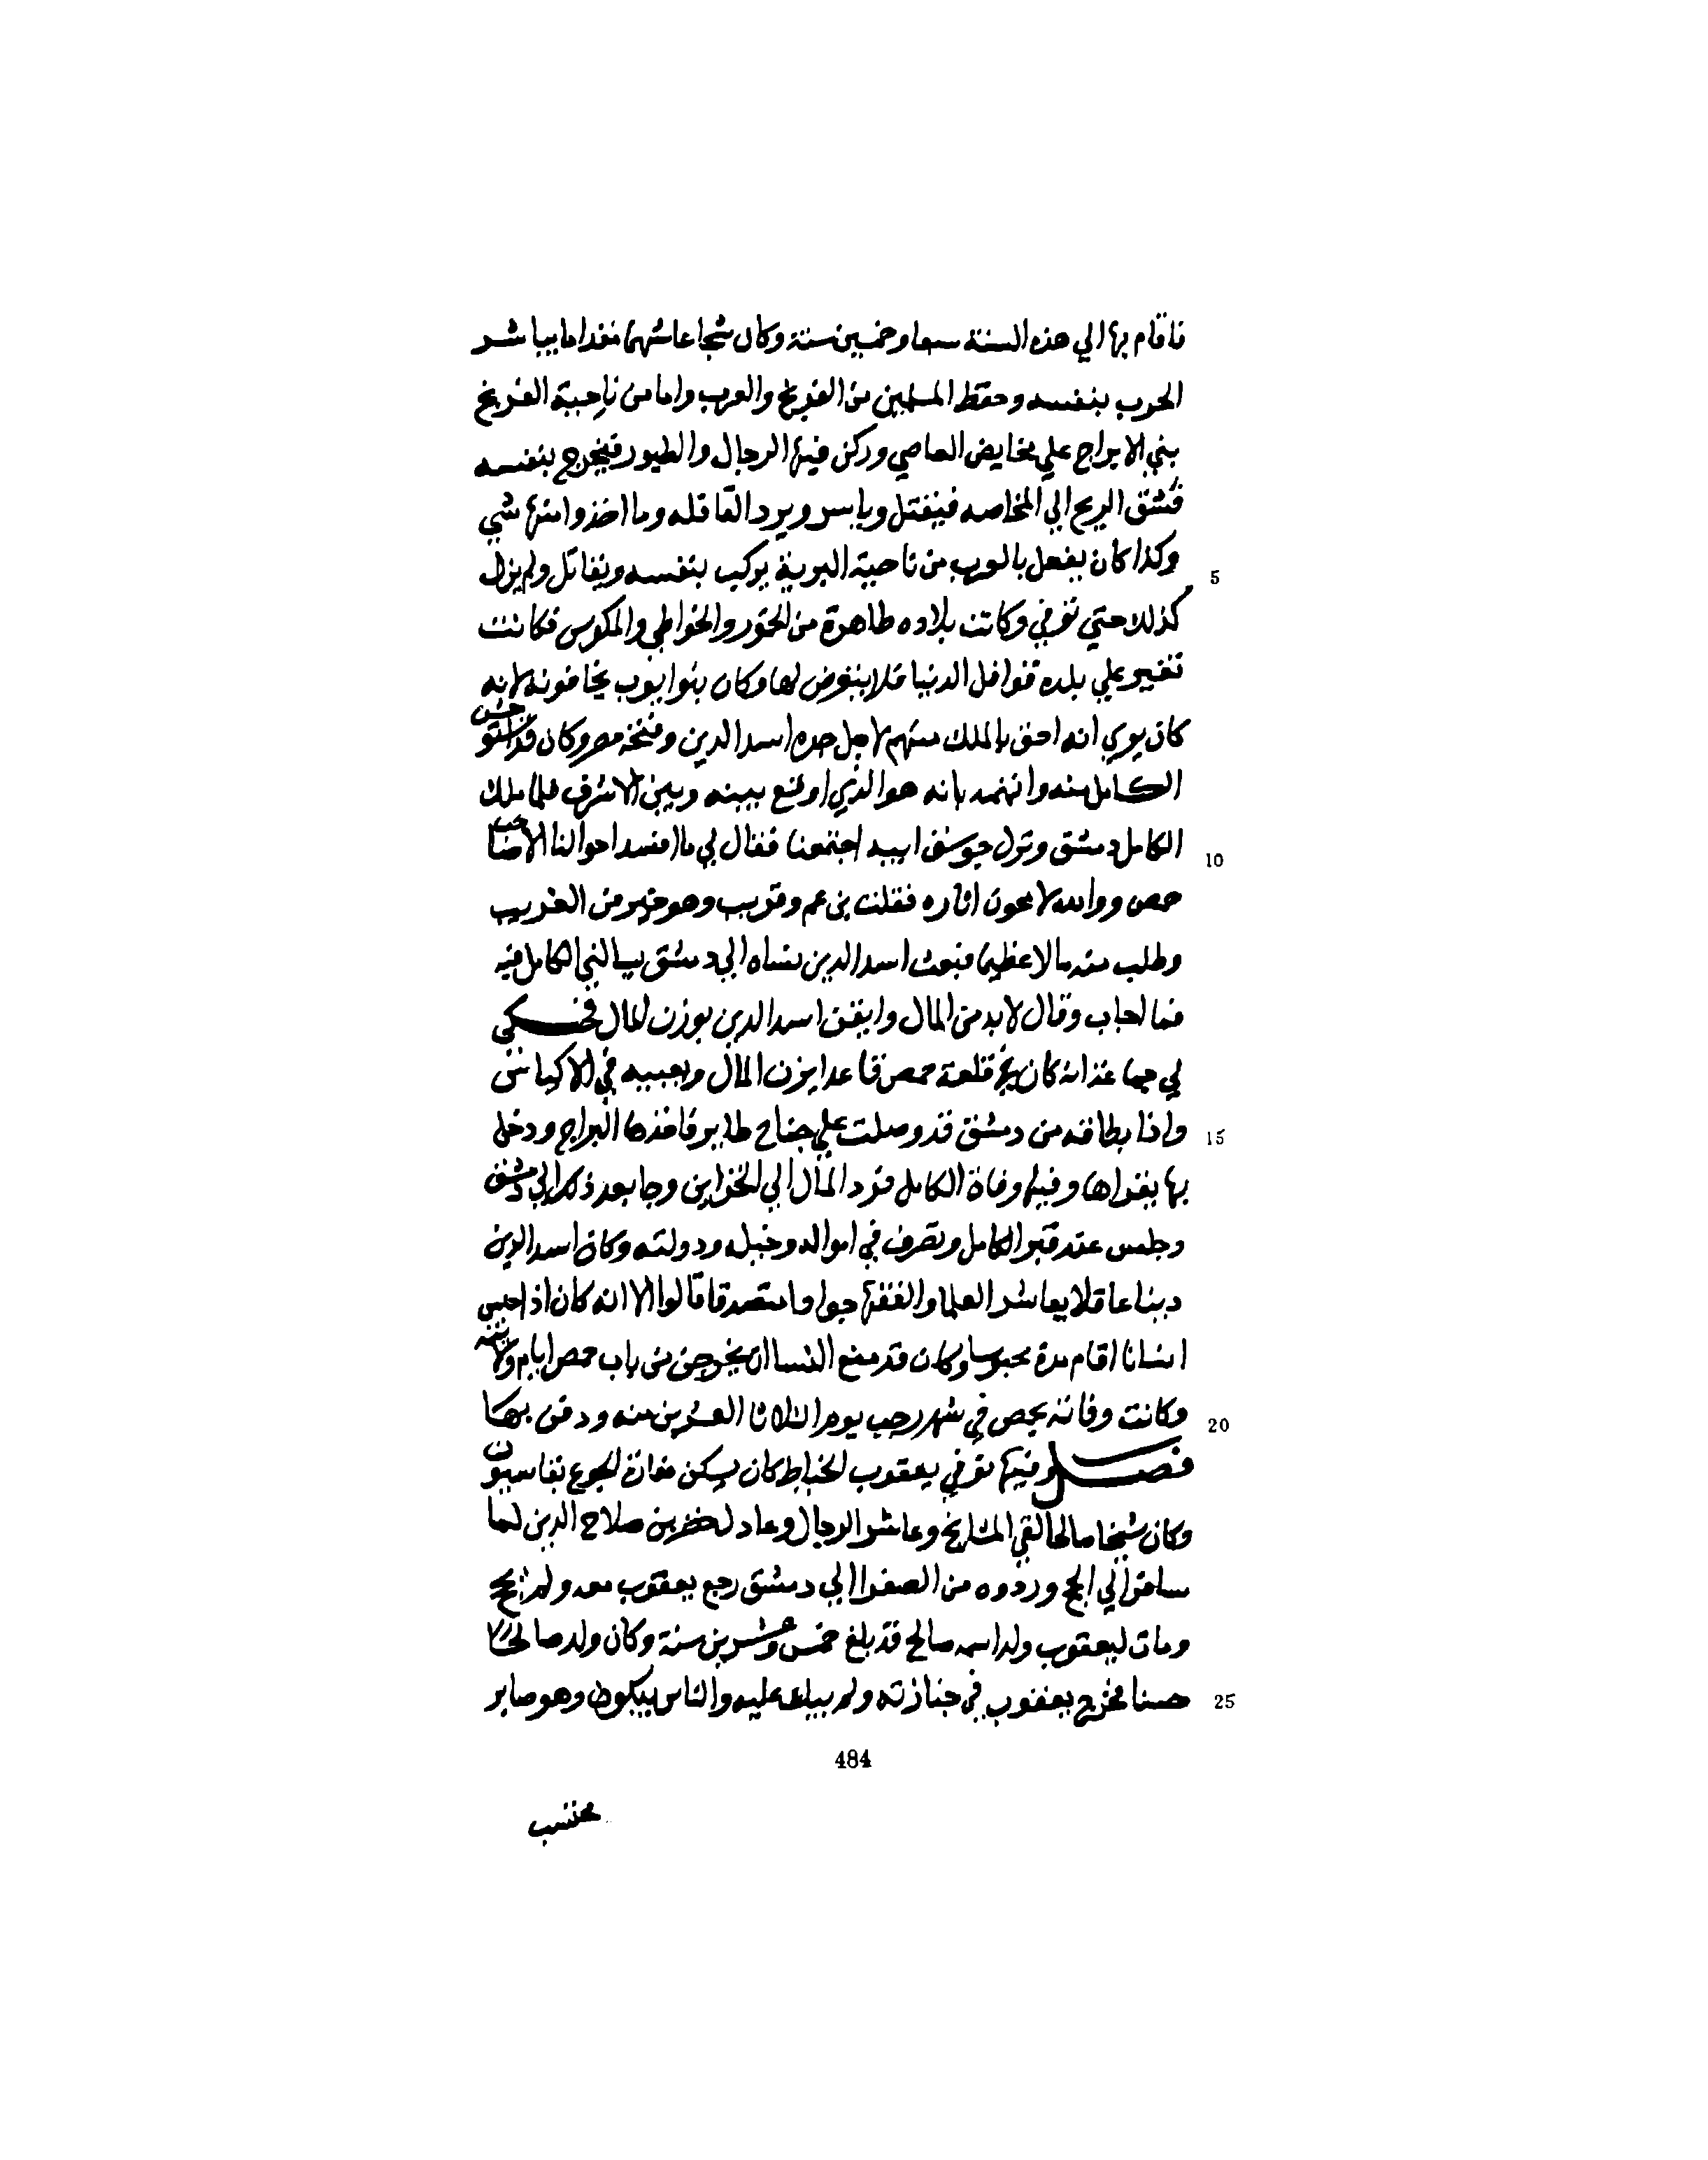 فاقام بها الي هذه السنة سبعا وخمسين سنة وكان شجاعا شهما مقداما يباشر
الحرب بنفسه وحفظ المسلمين من الفرنج والعرب واما من ناحية الفرنج
بني الابراج علي مخايض العاصي وركن فيها الرجال والطيور فيخرج بنفسه
الريح الي المخاصه فيقتل وياسر ويرد القافله وما اخذوا منها شي
وكذا كان يفعل بالعرب من ناحية البرية يركب بنفسه ويقاتل ولم يزل
كذلك حتي توفي وكانت بلاده طاهرة من الخمور والخواطي والمكوس فكانت
تعبر علي بلده قوافل الدنيا فلا يتعرض لها وكان بنوا ايوب يخافونه لانه
كان يري انه احق بالملك منهم لاجل جده اسد الدين وفتحه مصر وكان قد استوحش
الكامل منه واتهمه بانه هو الذي اوقع بينه وبين الاشرف فلما ملك
الكامل دمشق ونزل جوسق ابيه اجتمعنا فقال لي ما افسد احوالنا الا صاحب
حمص ووالله لامحون اثاره فقلت بن عم وقريب وهو خير من الغريب
وطلب منه مالا عظيما فبعث اسد الدين نساه الي دمشق يسالني الكامل فيه
فما اجاب وقال لا بد من المال وايقن اسد الدين بوزن المال فحكي
لي جماعة انه كان في قلعة حمص قاعدا يزن المال ويعبيه في الاكياس
واذا بطاقه من دمشق قد وصلت علي جناح طاير فاخذها البراج ودخل
بها يقراها وفيها وفاة الكامل فرد المال الي الخزاين وجا بعد ذلك الي دمشق
وجلس عند قبر الكامل وتصرف في امواله وخيله ودولته وكان اسد الدين
دينا عاقلا يعاشر العلما والفقها جوادا متصدقا قالوا الا انه كان اذا حبس
انسانا اقام مدة محبوسا وكان قد منع النسا ان يخرجن من باب حمص ايام ولايته
وكانت وفاته بحمص في شهر رجب يوم الثلاثا العشرين منه ودفن بها
فصل وفيها توفي يعقوب الخياط كان يسكن مغارة الجوع بقاسيون
وكان شيخا صالحا لقي المشايخ وعاشر الرجال وعادل خضر بن صلاح الدين لما
سافر الي الحج وردوه من الصفرا الي دمشق رجع يعقوب معه ولم يحج
ومات ليعقوب ولد اسمه صالح قد بلغ خمس وعشرين سنة وكان ولد صالحا
حسنا فخرج يعقوب في جنازته ولم يبك عليه والناس يبكون وهو صابر
5
10
15
20
25
484
محتسب